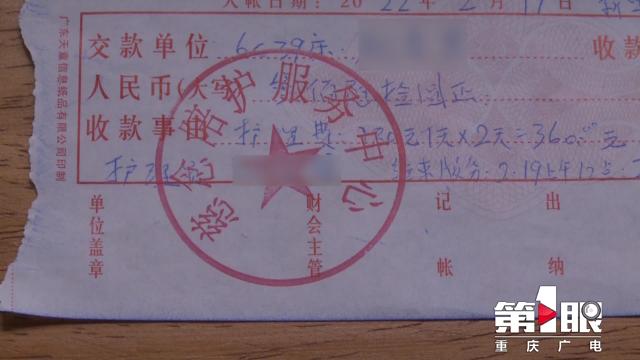 入帐日期：2022年2月17日
交款单位 6079床 收款
人民币(大写) 叁佰陆拾圆正
收款事由 护理费 180元1天×2天=360.00元
护理 结束服务:2.19上午12点
单位盖章 财会主管 记帐 出纳
慈 陪护服务中心
广东天意信息纸品有限公司印制
第1眼
重庆广电